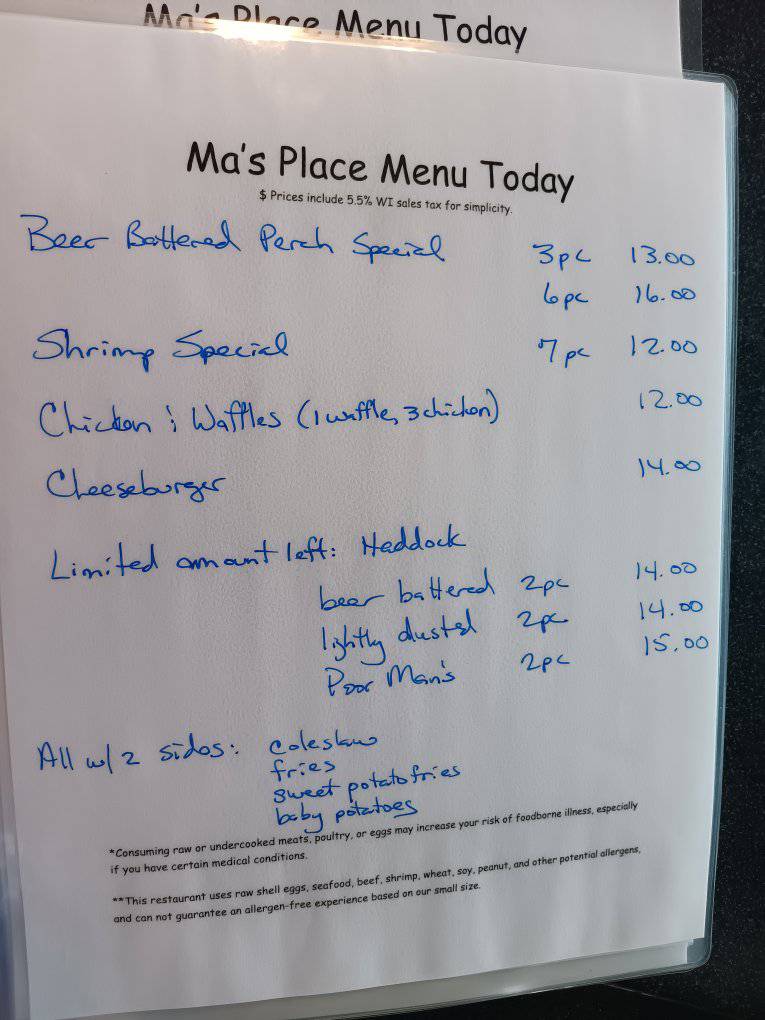 Ma's Place Menu Today
Ma's Place Menu Today
$ Prices include 5.5% WI sales tax for simplicity.
Beer Battered Perch Special 3pc 13.00
6pc 16.00
Shrimp Special 7pc 12.00
Chicken & Waffles (1 waffle, 3 chicken) 12.00
Cheeseburger 14.00
Limited amount left: Haddock
beer battered 2pc 14.00
lightly dusted 2pc 14.00
Poor Man's 2pc 15.00
All w/2 sides: coleslaw
fries
sweet potato fries
baby potatoes
*Consuming raw or undercooked meats, poultry, or eggs may increase your risk of foodborne illness, especially
if you have certain medical conditions.
**This restaurant uses raw shell eggs, seafood, beef, shrimp, wheat, soy, peanut, and other potential allergens,
and can not guarantee an allergen-free experience based on our small size.